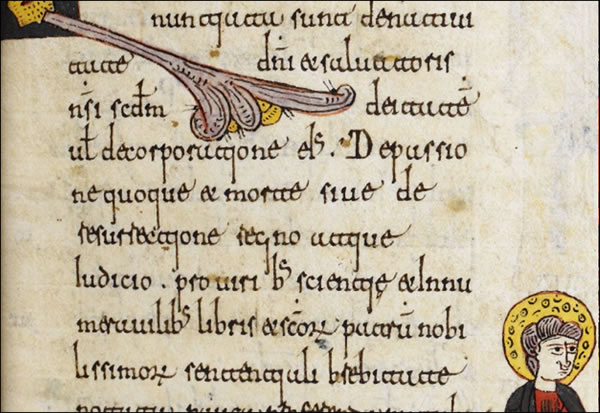 nuntiata sunt de nativi
tate dñi & salvatoris
nsĩ scdm deitatẽ
ul de corporatione eIs. De passio
ne quoque & morte sive de
resurrectione regno atque
Iudicio. pro virib; scientię & Innu
merauilib; libris & scõrꝝ patrũ nobi
lissimorꝝ sententiali brebitate